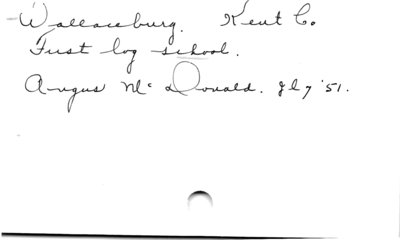 Wallaceburg. Kent Co
First log school.
Angus Mc Donald. Jly '51.